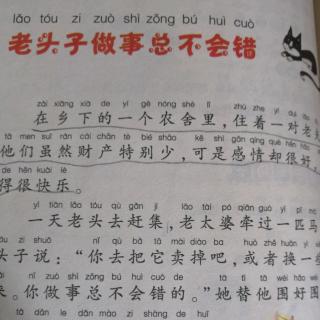 lǎo tóu zi zuò shì zǒng bú huì cuò
老头子做事总不会错
zài xiāng xià de yí gè nóng shè lǐ zhù zhe yí duì lǎo
在乡下的一个农舍里，住着一对老
tā men suī rán cái chǎn tè bié shǎo kě shì gǎn qíng què hěn hǎo
他们虽然财产特别少，可是感情却很好，
de hěn kuài lè
得很快乐。
yì tiān lǎo tóu qù gǎn jí lǎo tài pó qiān guò yì pǐ
一天老头去赶集，老太婆牵过一匹马
tóu zi shuō nǐ qù bǎ tā mài diào ba huò zhě huàn yí
头子说：“你去把它卖掉吧，或者换一
nǐ zuò shì zǒng bú huì cuò de tā tì tā wéi hǎo wéi
来。你做事总不会错的。”她替他围好围
tā dàn le dǎn mào zi shang de